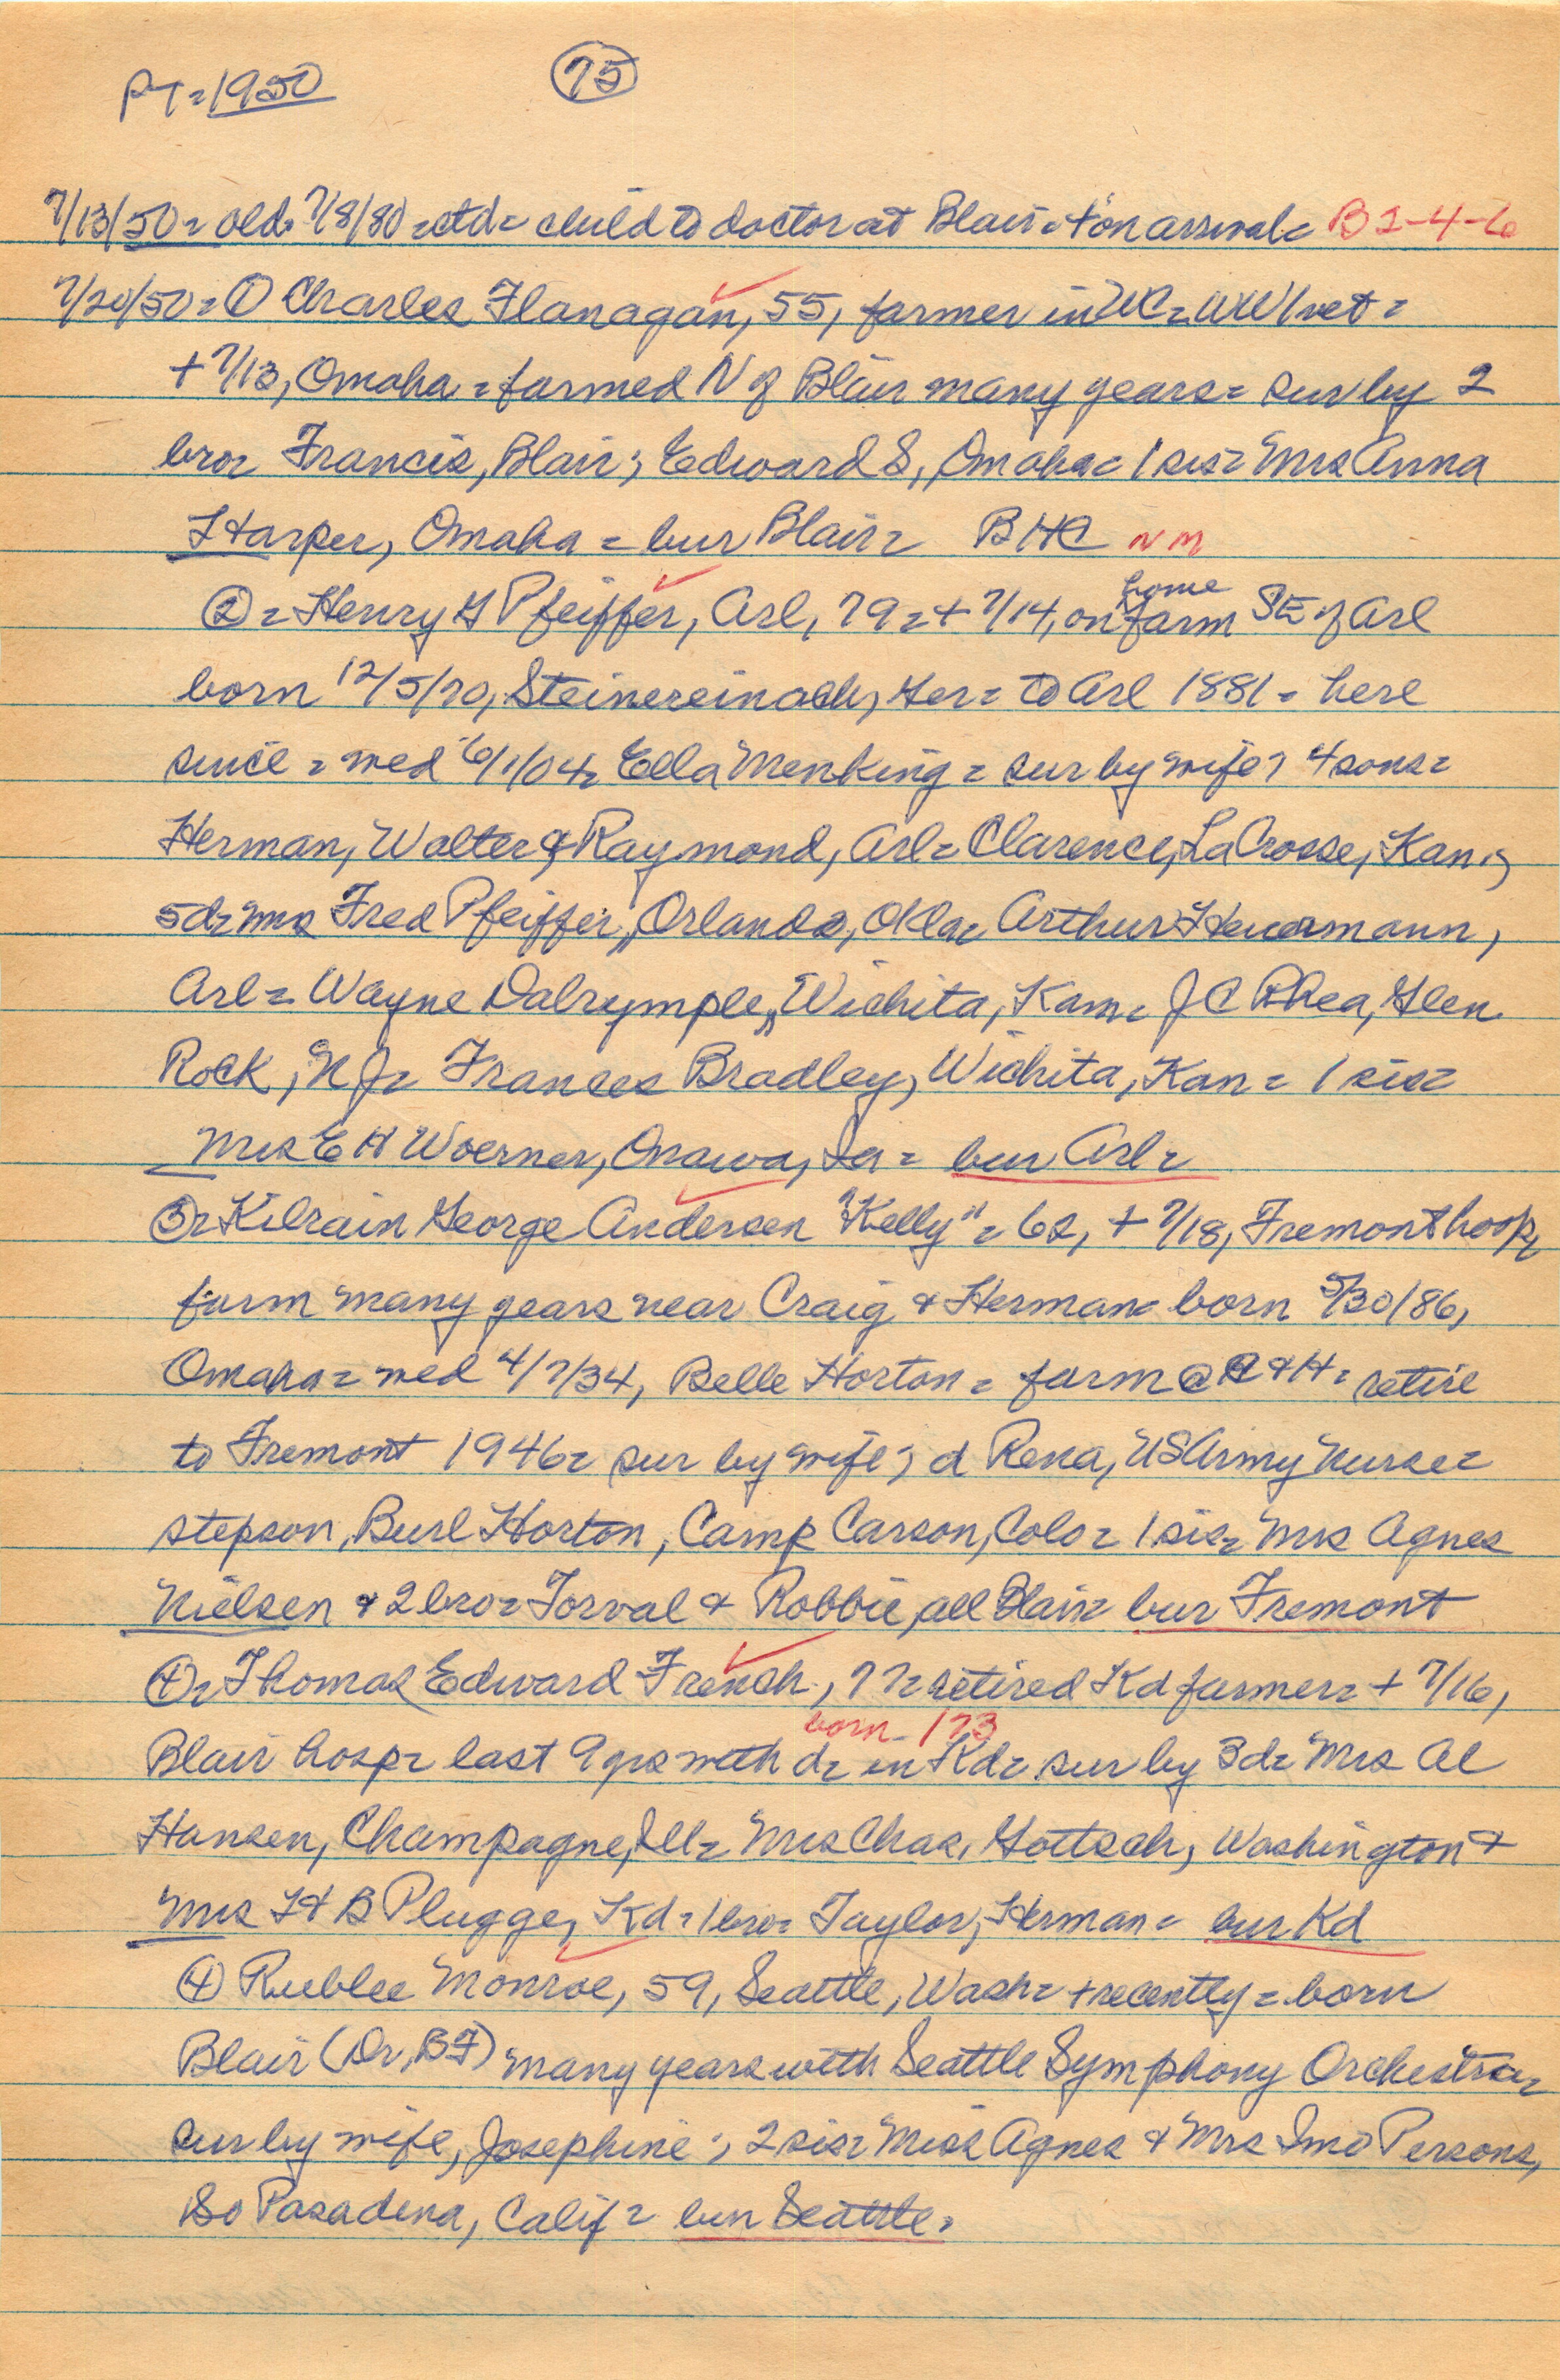 PT=1950 75
7/13/50= old= 7/8/80=ctd= child to doctor at Blair=+on arrival= B 2-4-6
7/20/50=① Charles Flanagan, 55, farmer in WC=WW1 vet=
+7/13, Omaha=farmed N of Blair many years= sur by 2
bro= Francis, Blair; Edward S, Omaha= 1 sis= Mrs Anna
Harper, Omaha = bur Blair= BHC NM
②= Henry G Pfeiffer, Arl, 79=+7/14, on home farm SE of Arl
born 12/5/70, Steinereinach, Ger= to Arl 1881= here
since = med 6/1/04= Ella Menking= sur by wife; 4 sons=
Herman, Walter & Raymond, Arl= Clarence, LaCrosse, Kan;
5d= Mrs Fred Pfeiffer, Orlando, Okla= Arthur Heuermann,
Arl= Wayne Dalrymple, Wichita, Kan= J C Rhea, Glen
Rock, N J= Frances Bradley, Wichita, Kan= 1 sis=
Mrs E H Woerner, Onawa, Ia= bur Arl=
③= Kilrain George Andersen "Kelly"= 62, +7/18, Fremont hosp=
farm many years near Craig & Herman= born 5/30/86,
Omaha= med 4/7/34, Belle Horton= farm @ C & H= retire
to Fremont 1946= sur by wife; d Rena, US Army Nurse=
stepson, Burl Horton, Camp Carson, Colo= 1 sis= Mrs Agnes
Nielsen & 2 bro= Torval & Robbie, all Blair= bur Fremont
④= Thomas Edward French, 77= retired Kd farmer= +7/16,
born 173
Blair hosp= last 9 yrs with d= in Kd= sur by 3d= Mrs Al
Hansen, Champagne, Ill= Mrs Chas. Gottsch, Washington &
Mrs H B Plugge, Kd=1 bro= Taylor, Herman= bur Kd
④ Rublee Monroe, 59, Seattle, Wash= +recently=born
Blair (Dr, BF) many years with Seattle Symphony Orchestra=
sur by wife, Josephine; 2 sis= Miss Agnes & Mrs Imo Persons,
So Pasadena, Calif= bur Seattle=